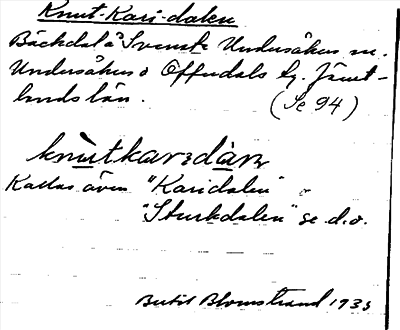 Knut-Kari-dalen
Bäckdal å Svenske Undersåkers m.
Undersåkers o Offerdals tg. Jämt-
lands län. (Se 94)
knùtkarɜdàɜn
Kallas även "Karidalen" o
"Sturkdalen" se d.o.
Bertil Blomstrand 1933